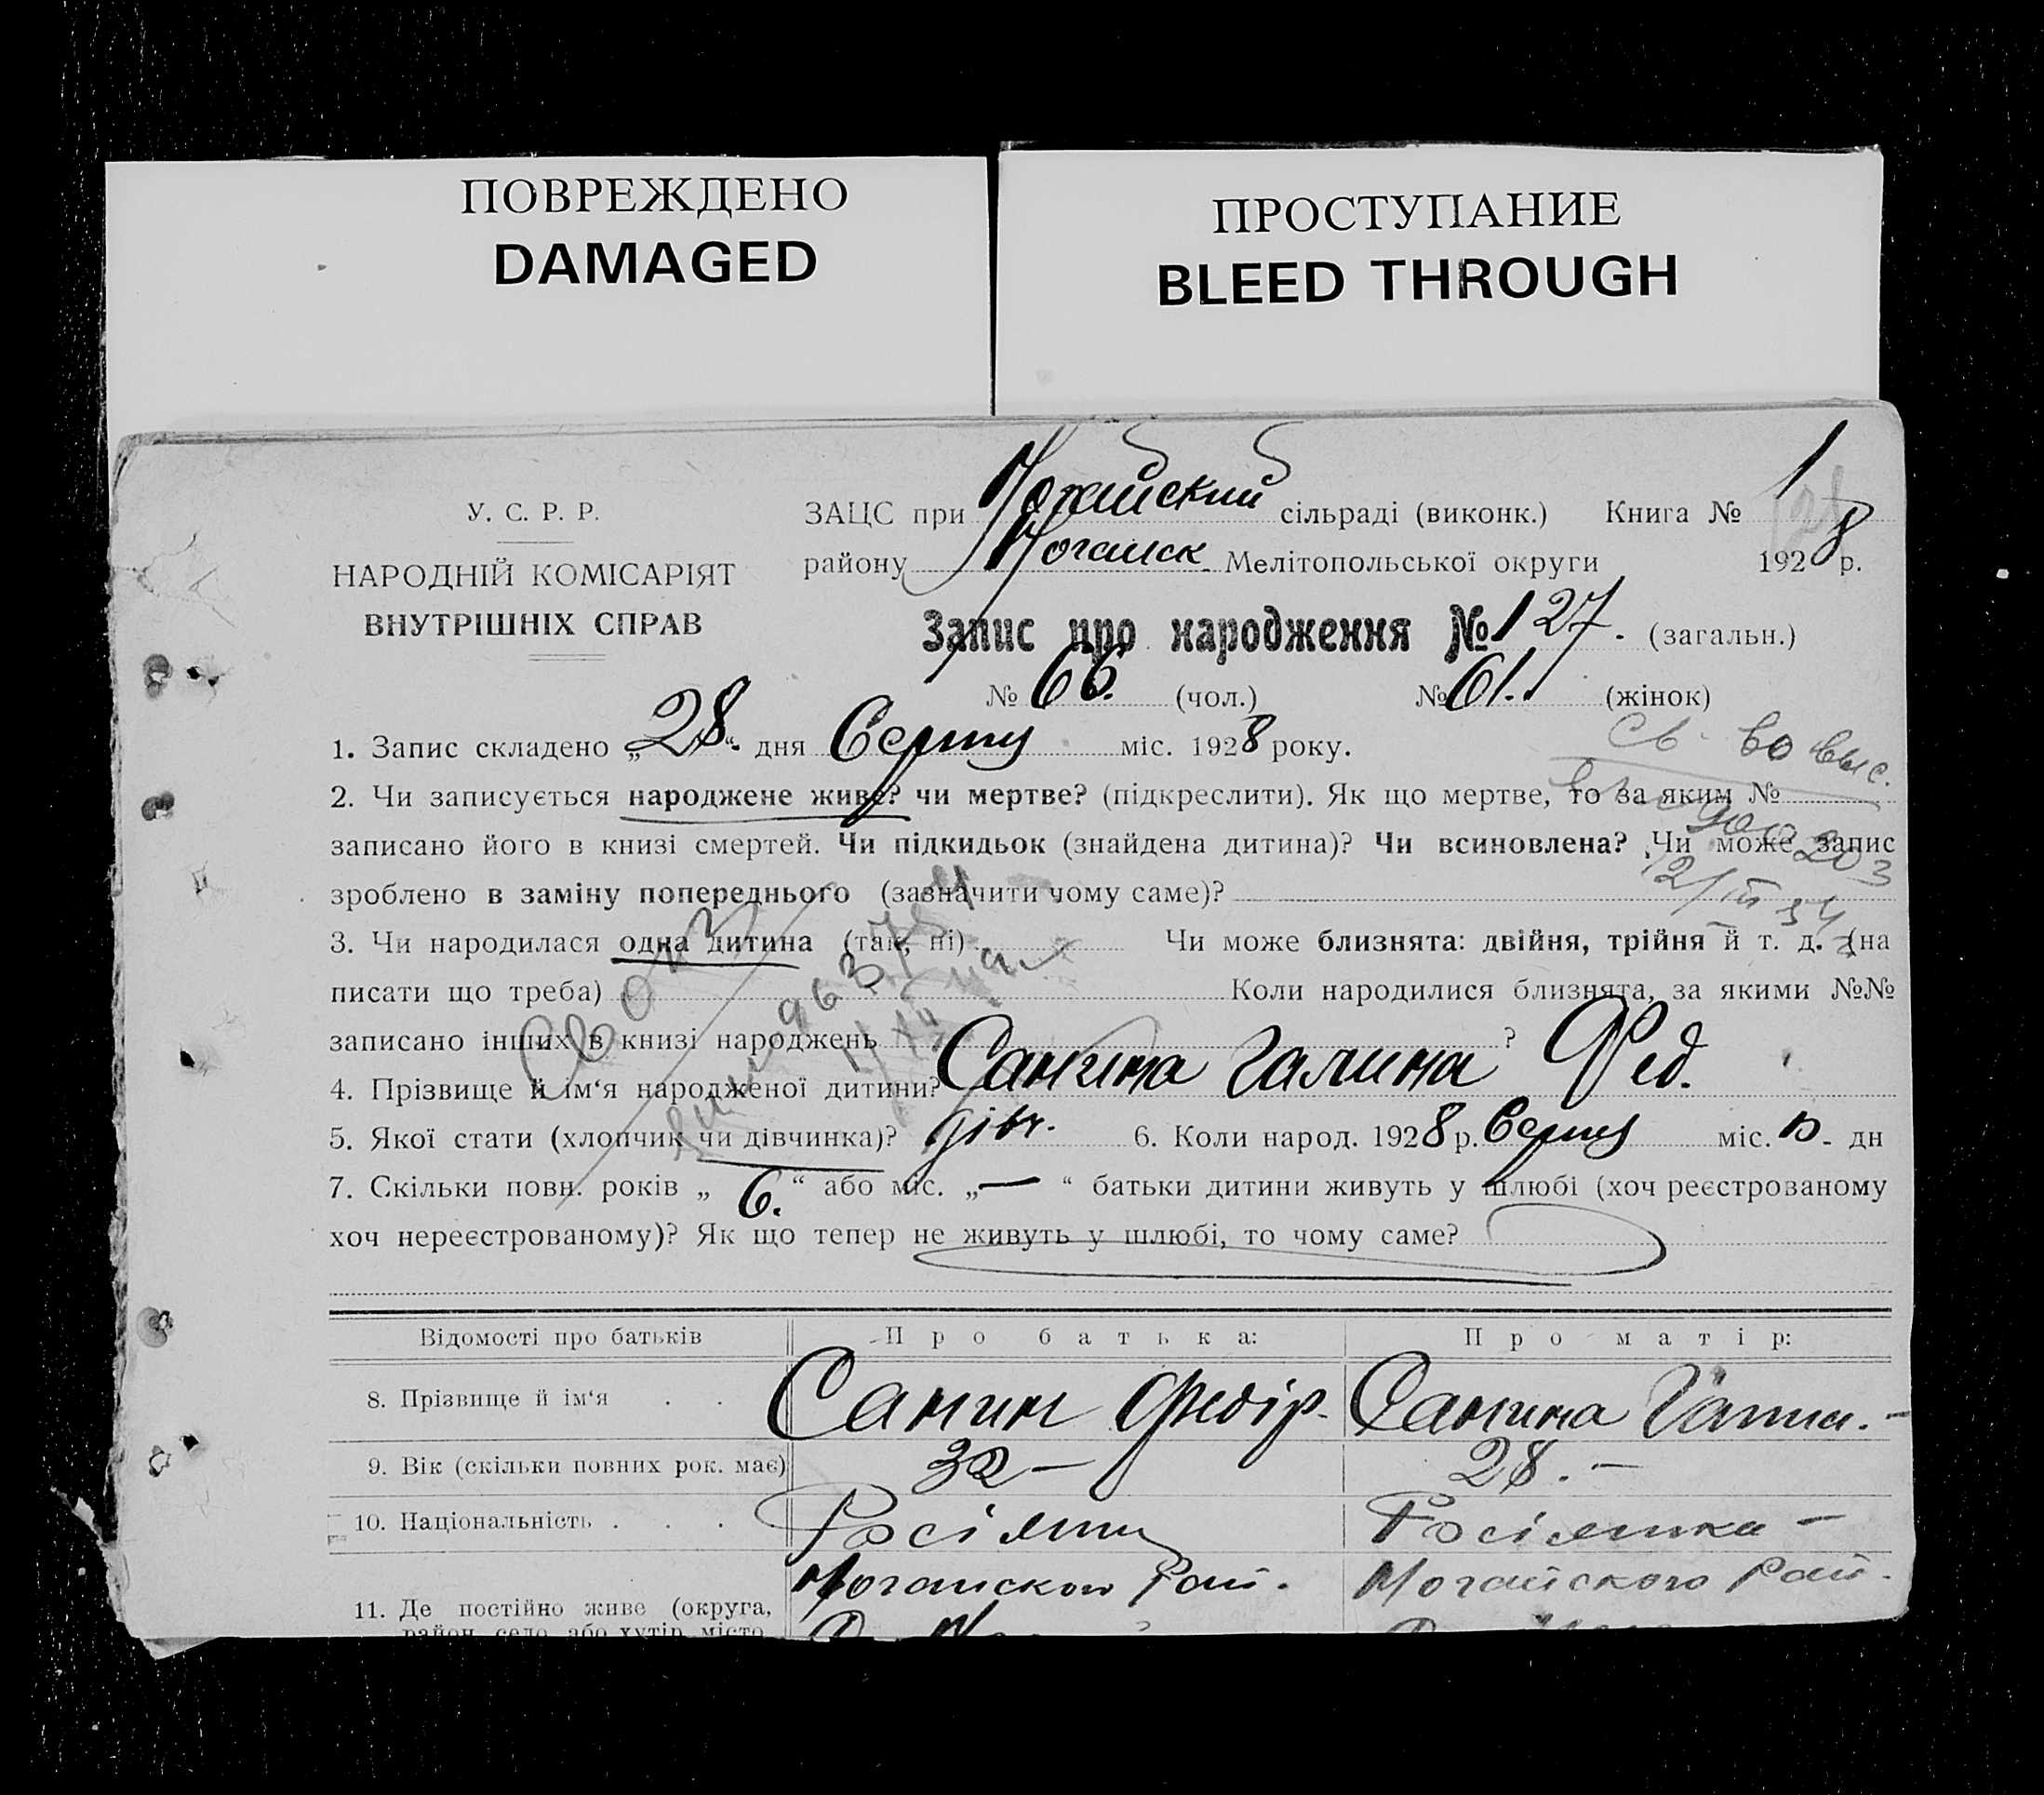 ПОВРЕЖДЕНО
DAMAGED
ПРОСТУПАНИЕ
BLEED THROUGH
У. С. Р. Р.
НАРОДНІЙ КОМІСАРІЯТ
ВНУТРІШНІХ СПРАВ
ЗАЦС при Ногайский сільраді (виконк.) Книга № 1
району Ногайск Мелітопольської округи 1928 р.
Запис про народження № 127. (загальн.)
№ 66. (чол.) № 61. (жінок)
1. Запис складено „28“ дня Серпня міс. 1928 року.
св-во выс.
2. Чи записується народжене живе? чи мертве? (підкреслити). Як що мертве, то за яким №
записано його в книзі смертей. Чи підкидьок (знайдена дитина)? Чи всиновлена? Чи може запис
зроблено в заміну попереднього (зазначити чому саме)?
3. Чи народилася одна дитина (так, ні) Чи може близнята: двійня, трійня й т. д. (на
писати що треба) Коли народилися близнята, за якими №№
записано інших в книзі народжень ?
4. Прізвище й ім‘я народженої дитини? Санина Галина Фед.
5. Якої стати (хлопчик чи дівчинка)? дівч. 6. Коли народ. 1928 р. Серпня міс. дн
7. Скільки повн. років „6.“ або міс. „—“ батьки дитини живуть у шлюбі (хоч реєстрованому
хоч нереєстрованому)? Як що тепер не живуть у шлюбі, то чому саме?
Відомості про батьків Про батька: Про матір:
8. Прізвище й ім‘я . . Санин Федір. Санина Ганна. -
9. Вік (скільки повних рок. має) 32 — 28. —
10. Національність . . . Росіянин Росіянка —
Ногайского Рай. Ногайского Рай.
11. Де постійно живе (округа,
район, село, або хутір, місто